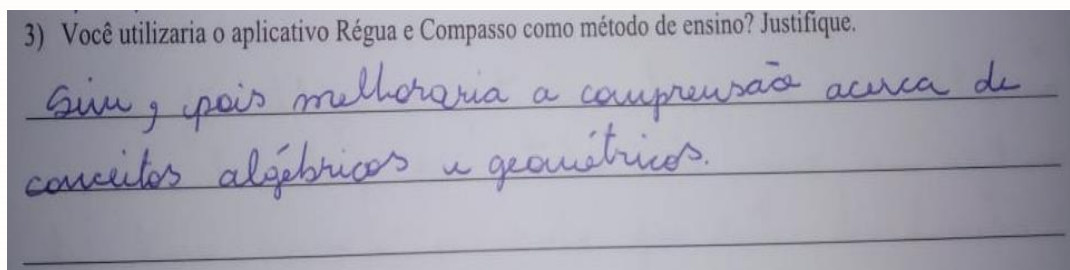 3) Você utilizaria o aplicativo Régua e Compasso como método de ensino? Justifique.
Sim, pois melhoraria a compreensão acerca de
conceitos algébricos e geométricos.